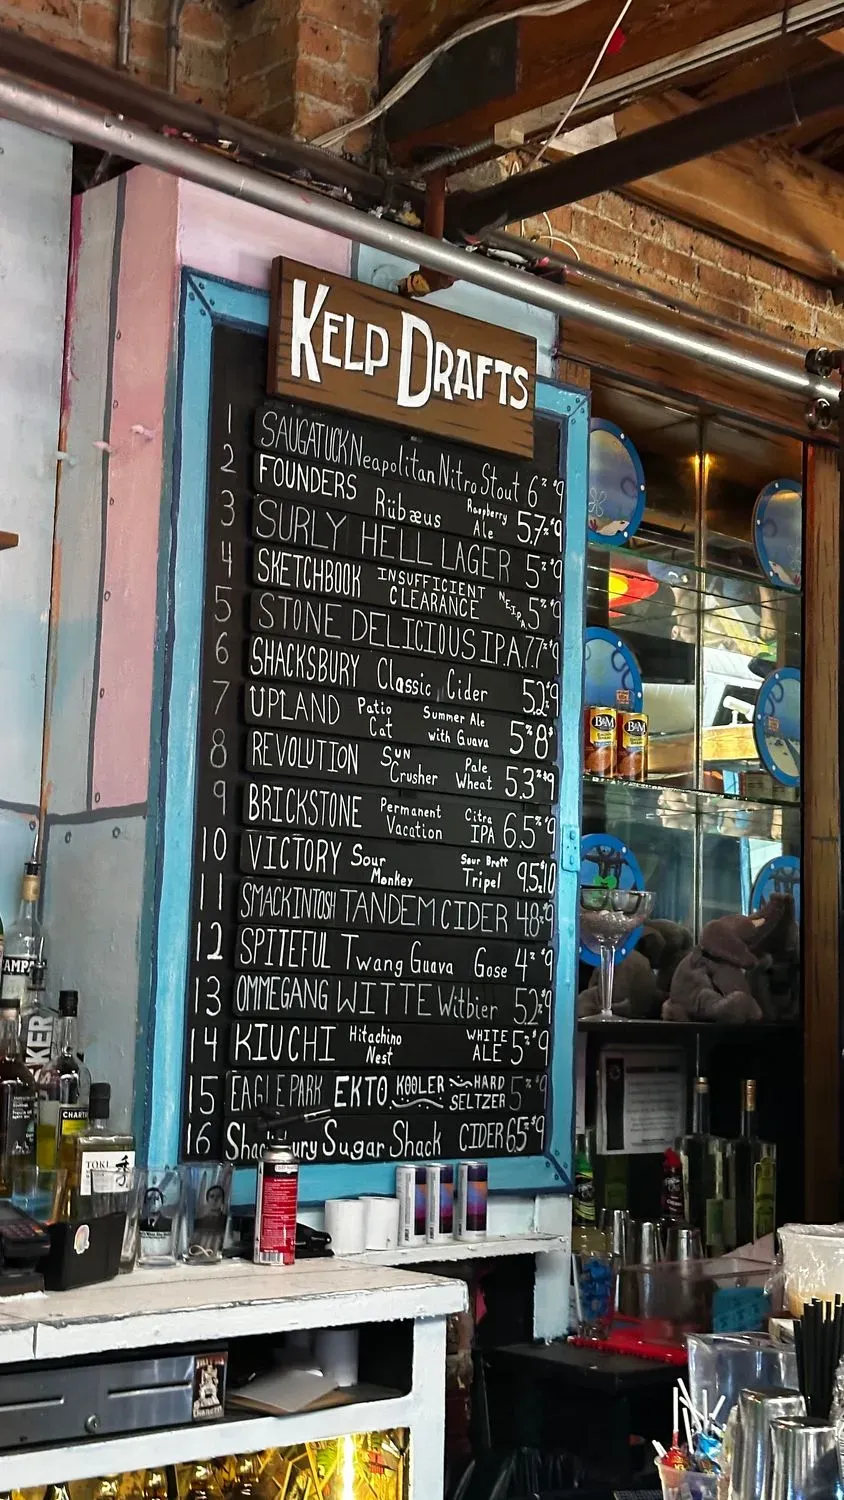 KELP DRAFTS
1 SAUGATUCK Neapolitan Nitro Stout 6% $9
2 FOUNDERS Rübæus Raspberry Ale 5.7% $9
3 SURLY HELL LAGER 5% $9
4 SKETCHBOOK INSUFFICIENT CLEARANCE N.E.I.P.A 5% $9
5 STONE DELICIOUS I.P.A. 7.7% $9
6 SHACKSBURY Classic Cider 5.2% $9
7 UPLAND Patio Cat Summer Ale with Guava 5% 8$
8 REVOLUTION SUN Crusher Pale Wheat 5.3% $9
9 BRICKSTONE Permanent Vacation Citra IPA 6.5% $9
10 VICTORY Sour Monkey Sour Brett Tripel 9.5% $10
11 SMACKINTOSH TANDEM CIDER 4.8% $9
12 SPITEFUL Twang Guava Gose 4% $9
13 OMMEGANG WITTE Witbier 5.2% $9
14 KIUCHI Hitachino Nest WHITE ALE 5% $9
15 EAGLE PARK EKTO KOOLER HARD SELTZER 5% $9
16 Shacksbury Sugar Shack CIDER 6.5% $9
B&M
B&M
TOKI